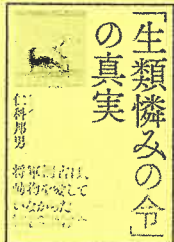 「生類憐みの令」
の真実
仁科邦男
将軍綱吉は、
動物を愛して
いなかった